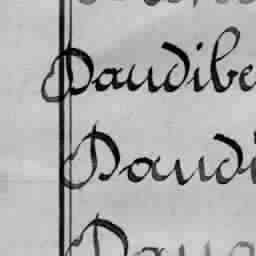 Daudibe
Daudi
Dau